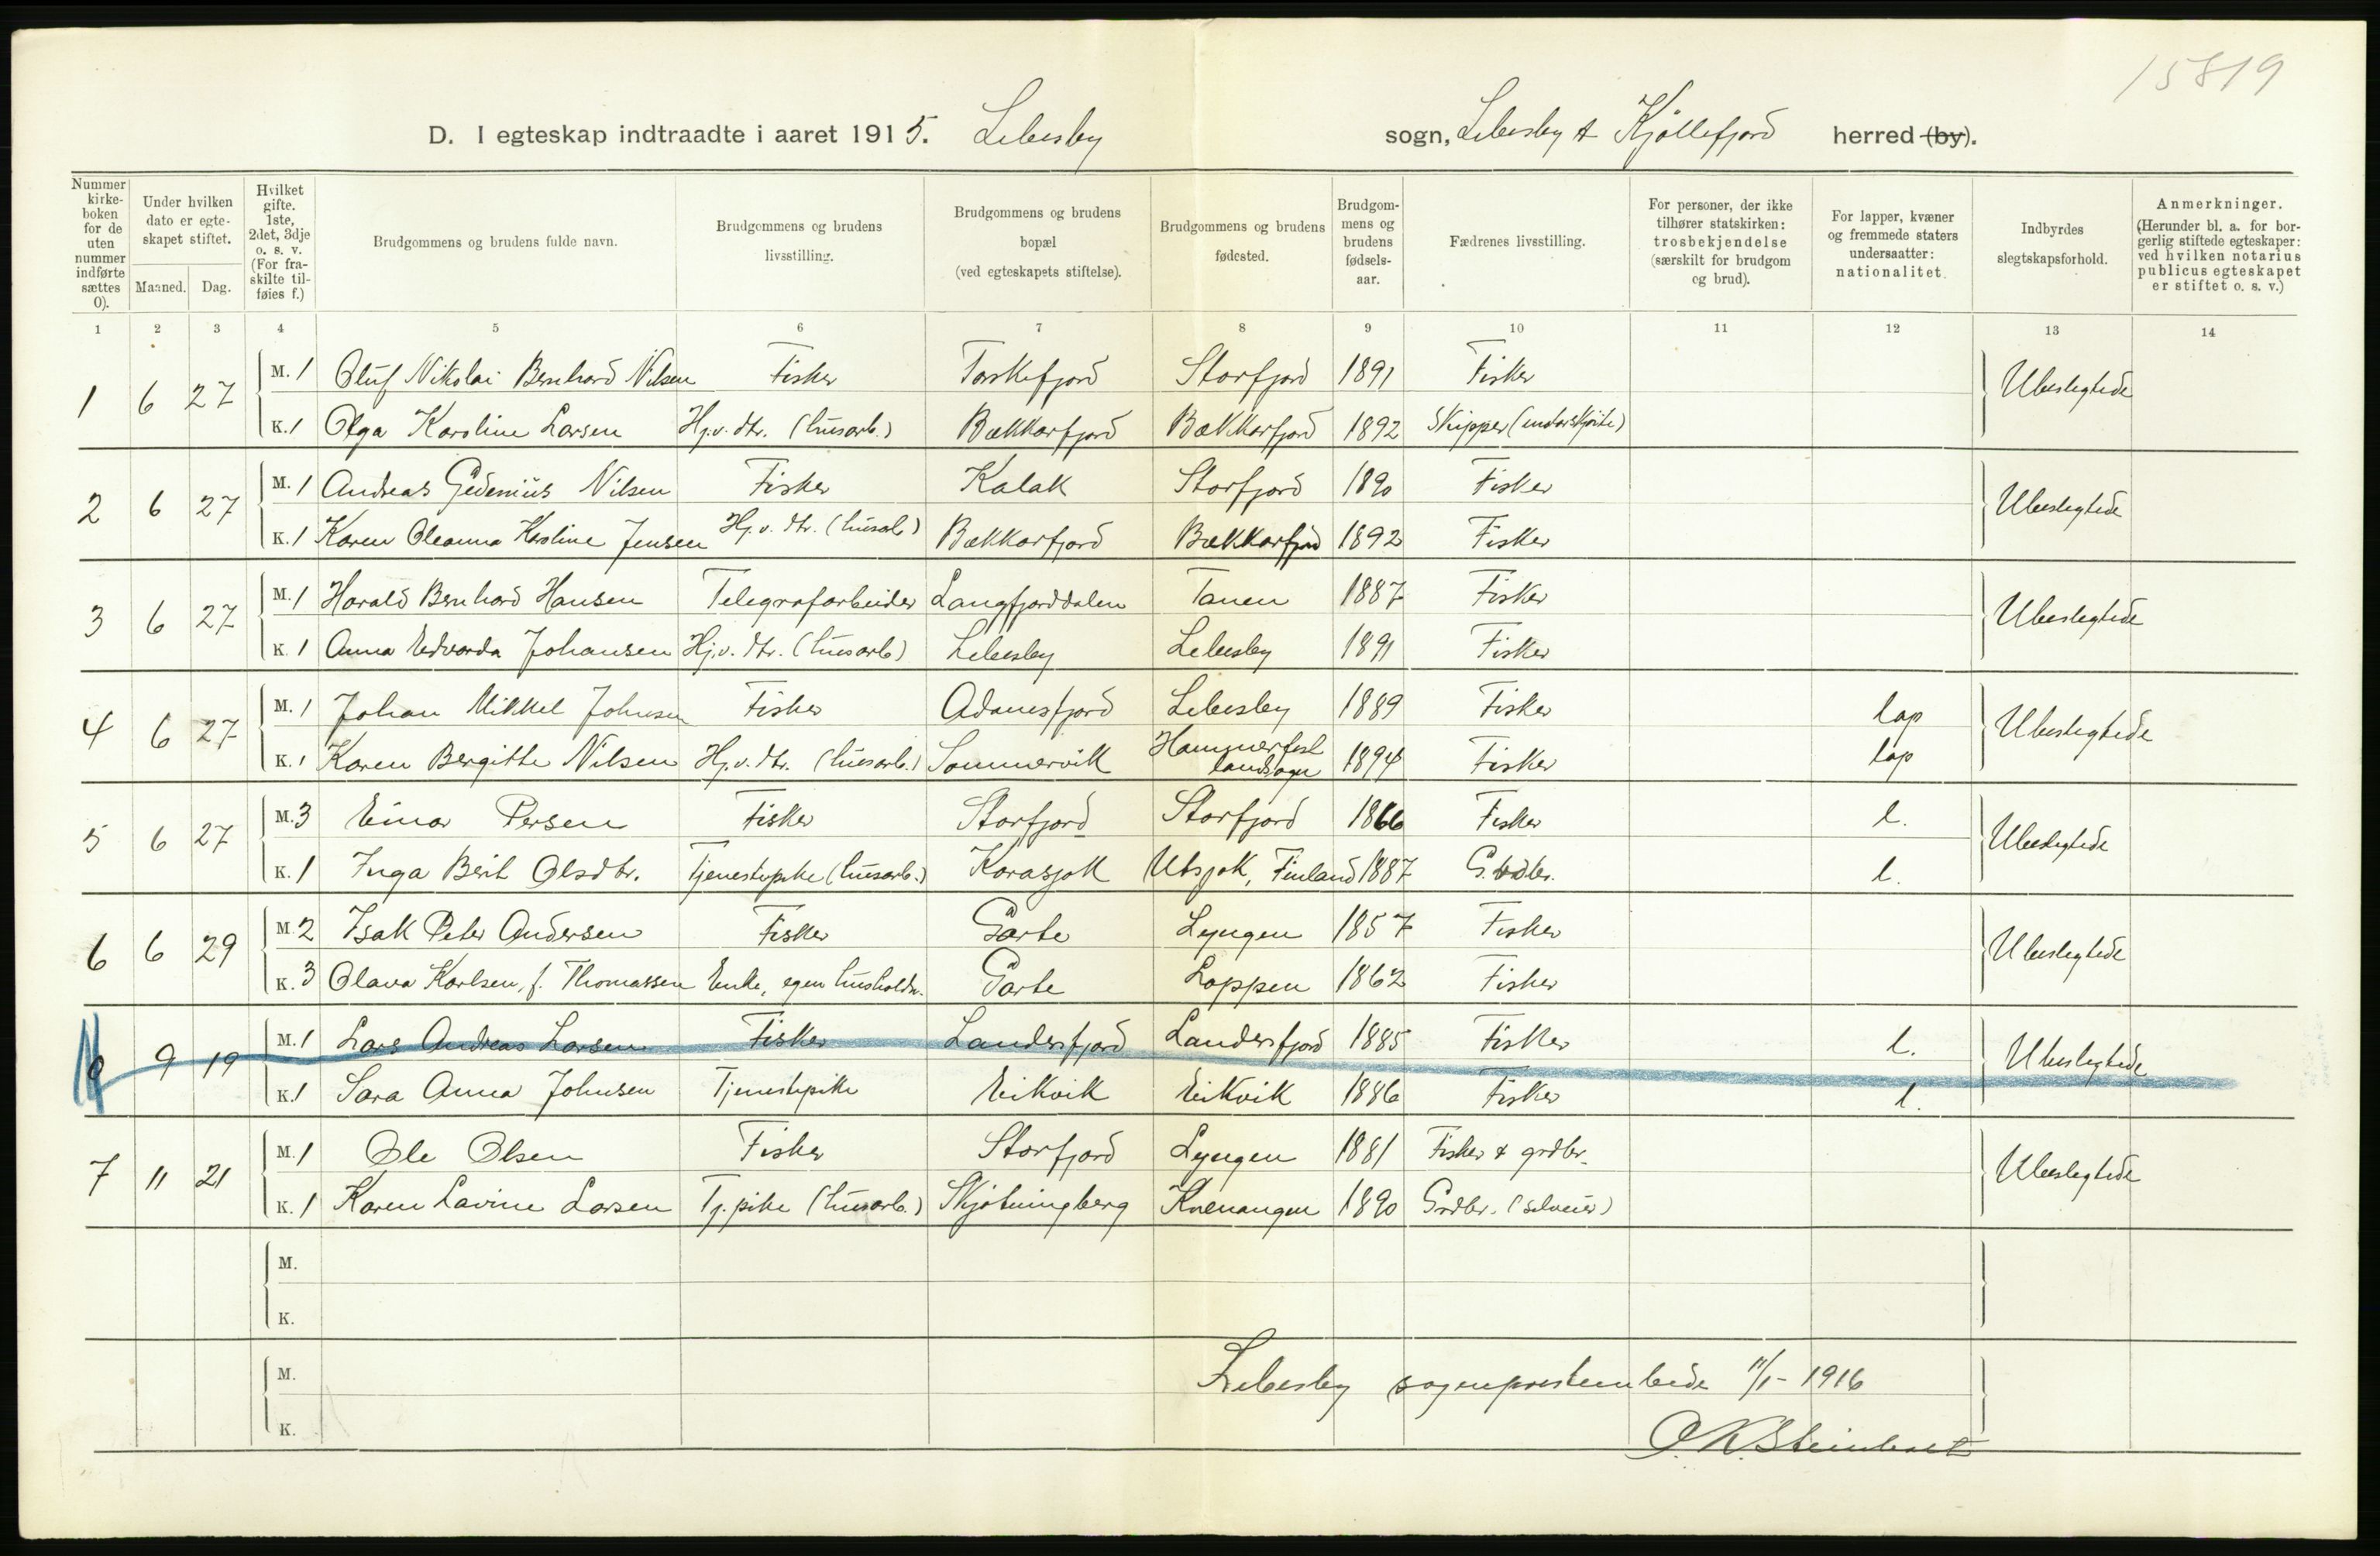 15819
D. I egteskap indtraadte i aaret 1915. Lebesby sogn, Lebesby & Kjøllefjord herred (by).
Nummer kirke-boken for de uten nummer indførte sættes 0).
Under hvilken dato er egte-skapet stiftet.
Maaned. Dag.
Hvilket gifte. 1ste, 2det, 3dje o. s. v. (For fra-skilte til-føies f.)
Brudgommens og brudens fulde navn.
Brudgommens og brudens livsstilling.
Brudgommens og brudens bopæl (ved egteskapets stiftelse).
Brudgommens og brudens fødested.
Brudgom-mens og brudens fødsels-aar.
Fædrenes livsstilling.
For personer, der ikke tilhører statskirken: trosbekjendelse (særskilt for brudgom og brud).
For lapper, kvæner og fremmede staters undersaatter: nationalitet.
Indbyrdes slegtskapsforhold.
Anmerkninger. (Herunder bl. a. for bor-gerlig stiftede egteskaper: ved hvilken notarius publicus egteskapet er stiftet o. s. v.)
1 2 3 4 5 6 7 8 9 10 11 12 13 14
1 6 27 M. 1 Oluf Nikolai Bernhard Nilsen Fisker Torskefjord Storfjord 1891 Fisker Ubeslegtede
K. 1 Olga Karoline Larsen Hj.v. dtr. (husarb.) Bekkarfjord Bekkarfjord 1892 Skipper
2 6 27 M. 1 Andreas Gedenius Nilsen Fisker Kalak Storfjord 1890 Fisker Ubeslegtede
K. 1 Karen Oleanna Haoline Jensen Hj.v. dtr. (husarb) Bekkarfjord Bekkarfjord 1892 Fisker
3 6 27 M. 1 Harald Bernhard Hansen Telegrafarbeider Langfjorddalen Tanen 1887 Fisker Ubeslegtede
K. 1 Anna Edvarda Johansen Hj.v. dtr. (husarb) Lebesby Lebesby 1891 Fisker
4 6 27 M. 1 Johan Mikkel Johnsen Fisker Adamsfjord Lebesby 1889 Fisker lap Ubeslegtede
K. 1 Karen Bergitte Nilsen Hj.v. dtr. (husarb.) Sommervik Hammerfest landsogn 1894 Fisker lap
5 6 27 M. 3 Einar Persen Fisker Storfjord Storfjord 1866 Fisker l. Ubeslegtede
K. 1 Inga Berit Olsdtr. Tjenestepike (husarb.) Karasjok Utsjok, Finland 1887 l.
6 6 29 M. 2 Isak Peter Andersen Fisker Garte Lyngen 1857 Fisker Ubeslegtede
K. 3 Olava Karlsen, f. Thomassen Enke, egen husholdn. Garte Loppen 1862 Fisker
0 9 19 M. 1 Lars Andreas Larsen Fisker Landersfjord Landersfjord 1885 Fisker l. Ubeslegtede
K. 1 Sara Anna Johnsen Tjenestepike Eikvik Eikvik 1886 Fisker l.
7 11 21 M. 1 Ole Olsen Fisker Storfjord Lyngen 1881 Fisker & grdbr. Ubeslegtede
K. 1 Karen Lavine Larsen Tj.pike (husarb.) Skjøtningberg Kvenangen 1890 Grdbr. (selveier)
M.
K.
M.
K.
Lebesby sogneprestembede 11/1 - 1916
O. K. Steinholt